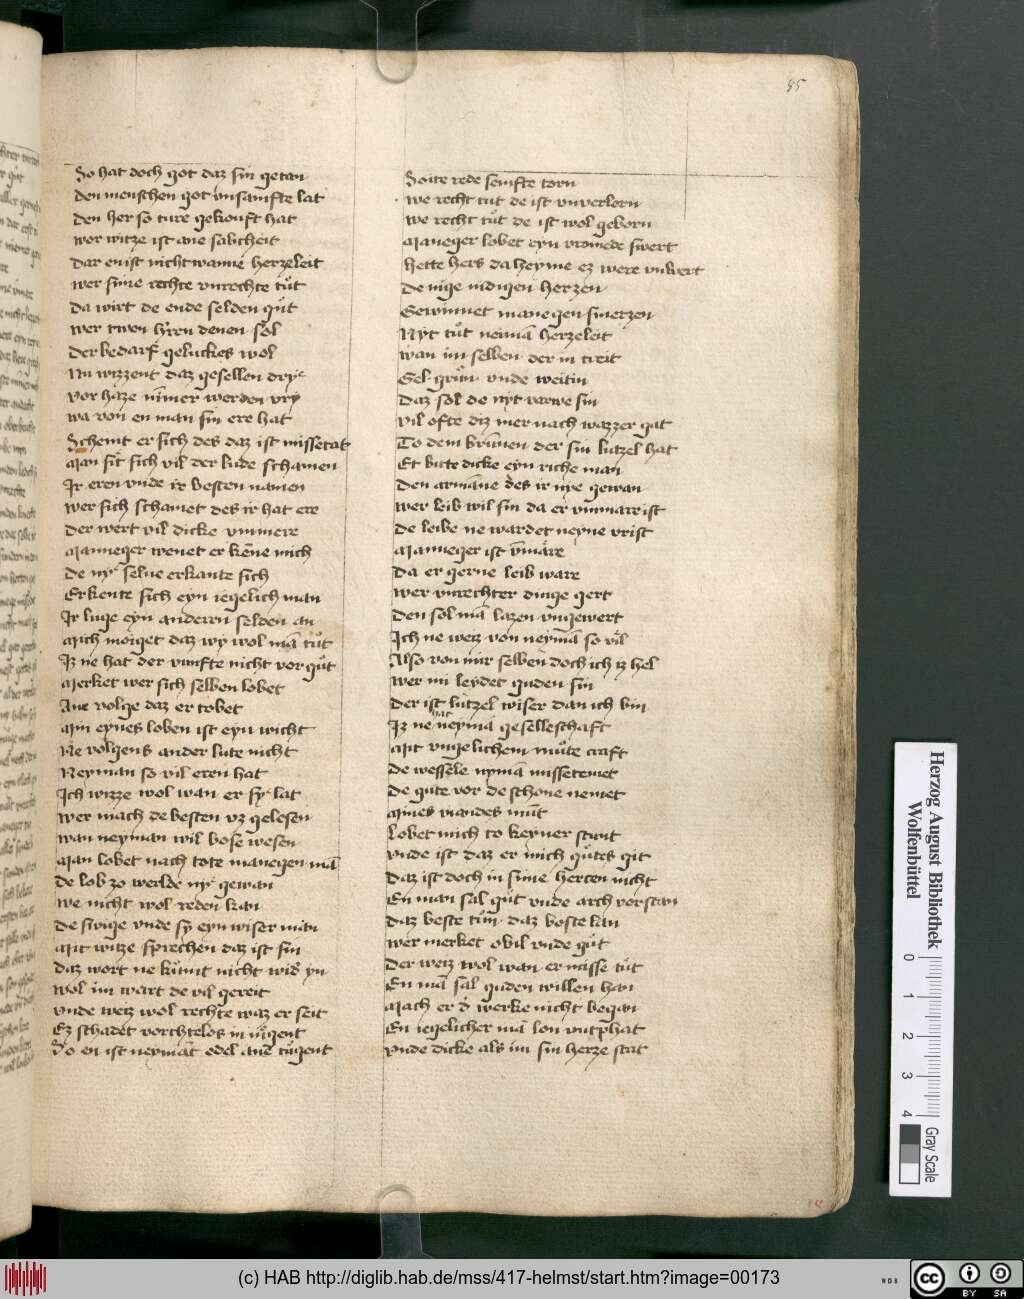 85
So hat doch got daz sin getan
Den menschen got vnsamfte lat
Den her so ture gekouft hat
wor witze ist ane salicheit
Dar enist nicht wanne herzeleit
wer sine rechte vnrechte tůt
Da wirt de ende selden gůt
wer twen hern denen sol
Der bedarf geluckes wol
Nu wizzent daz gesellen dry
vor haze nimer werden vry
wa von en man sin ere hat
Schemt er sich des daz ist missetat
Man sit sich vil der lude schamen
Ir eren vnde ir besten namen
wer sich schamet des ir hat ere
Der wert vil dicke vnmere
Manneger wenet er kēne mich
De ny selue erkante sich
Erkente sich eyn iegelich man
Ir luge eyn anderrn selden an
Mich moiget daz wy wol mā tůt
Iz ne hat der vunfte nicht vor gůt
Merket wer sich selben lobet
Ane volge daz er tobet
Min eynes loben ist eyn wicht
Ne volgens ander lute nicht
Neyman so vil eren hat
Ich wizze wol wan er sy lat
wer mach de besten vz gelesen
wan neyman wil bose wesen
Man lobet nach tote manegen mā
De lob zo werlde ny gewan
we nicht wol reden kan
De swige vnde sy eyn wiser man
Mit witze sprechen daz ist sin
Daz wort ne kůmt nicht wid yn
wol im wart de vil gereit
vnde weiz wol rechte waz er seit
Ez schadet vorchtelos in iugent
So en ist neymāt edel ane tůgent
Soite rede senfte torn
we recht tut de ist vnverlorn
we recht tůt de ist wol geborn
Maneger lobet eyn vromede swert
hette hers da heyme ez were vnwert
De nige nidigen herzen
Gewinnet manegen smerzen
Nyt tůt neimā herzeleit
wan im selben der in treit
Gel grůn vnde weitin
Daz sol de nyt varwe sin
vil ofte diz mer nach wazzer gat
To dem brūnen der sin lutzel hat
Et bitte dicke eyn riche man
Den armāne des ir nye gewan
wer leib wil sin da er vnmarr ist
De leibe ne wardet neyne vrist
Manneger ist vnmāre
Da er gerne leib ware
wer vnrechter dinge gert
Den sol mā lazen vngewert
Ich ne weiz von neymā so vil
Also von mir selben doch ich iz hel
wer mi leydet guden sin
Der ist lutzel wiser dan ich bin
Iz ne hat neymā geselleschaft
Mit vngelichem můte craft
De wessele nymā missetmet
De gute vor de schone nemet
Mines viandes mūt
Lobet mich to keyner stunt
vnde ist daz er mich gůtes git
Daz ist doch in sime hercen nicht
En man sal gůt vnde arch verstan
Daz beste tůn daz boste lan
wer merket obil vnde gůt
Der weiz wol wan er misse tůt
En mā sal guden willen han
Mach er d werke nicht began
En iegelicher mā lon vntphat
vnde dicke als im sin herze stat
Herzog August Bibliothek
Wolfenbüttel
0 1 2 3 4
Gray Scale
(c) HAB http://diglib.hab.de/mss/417-helmst/start.htm?image=00173
WDB
cc BY SA